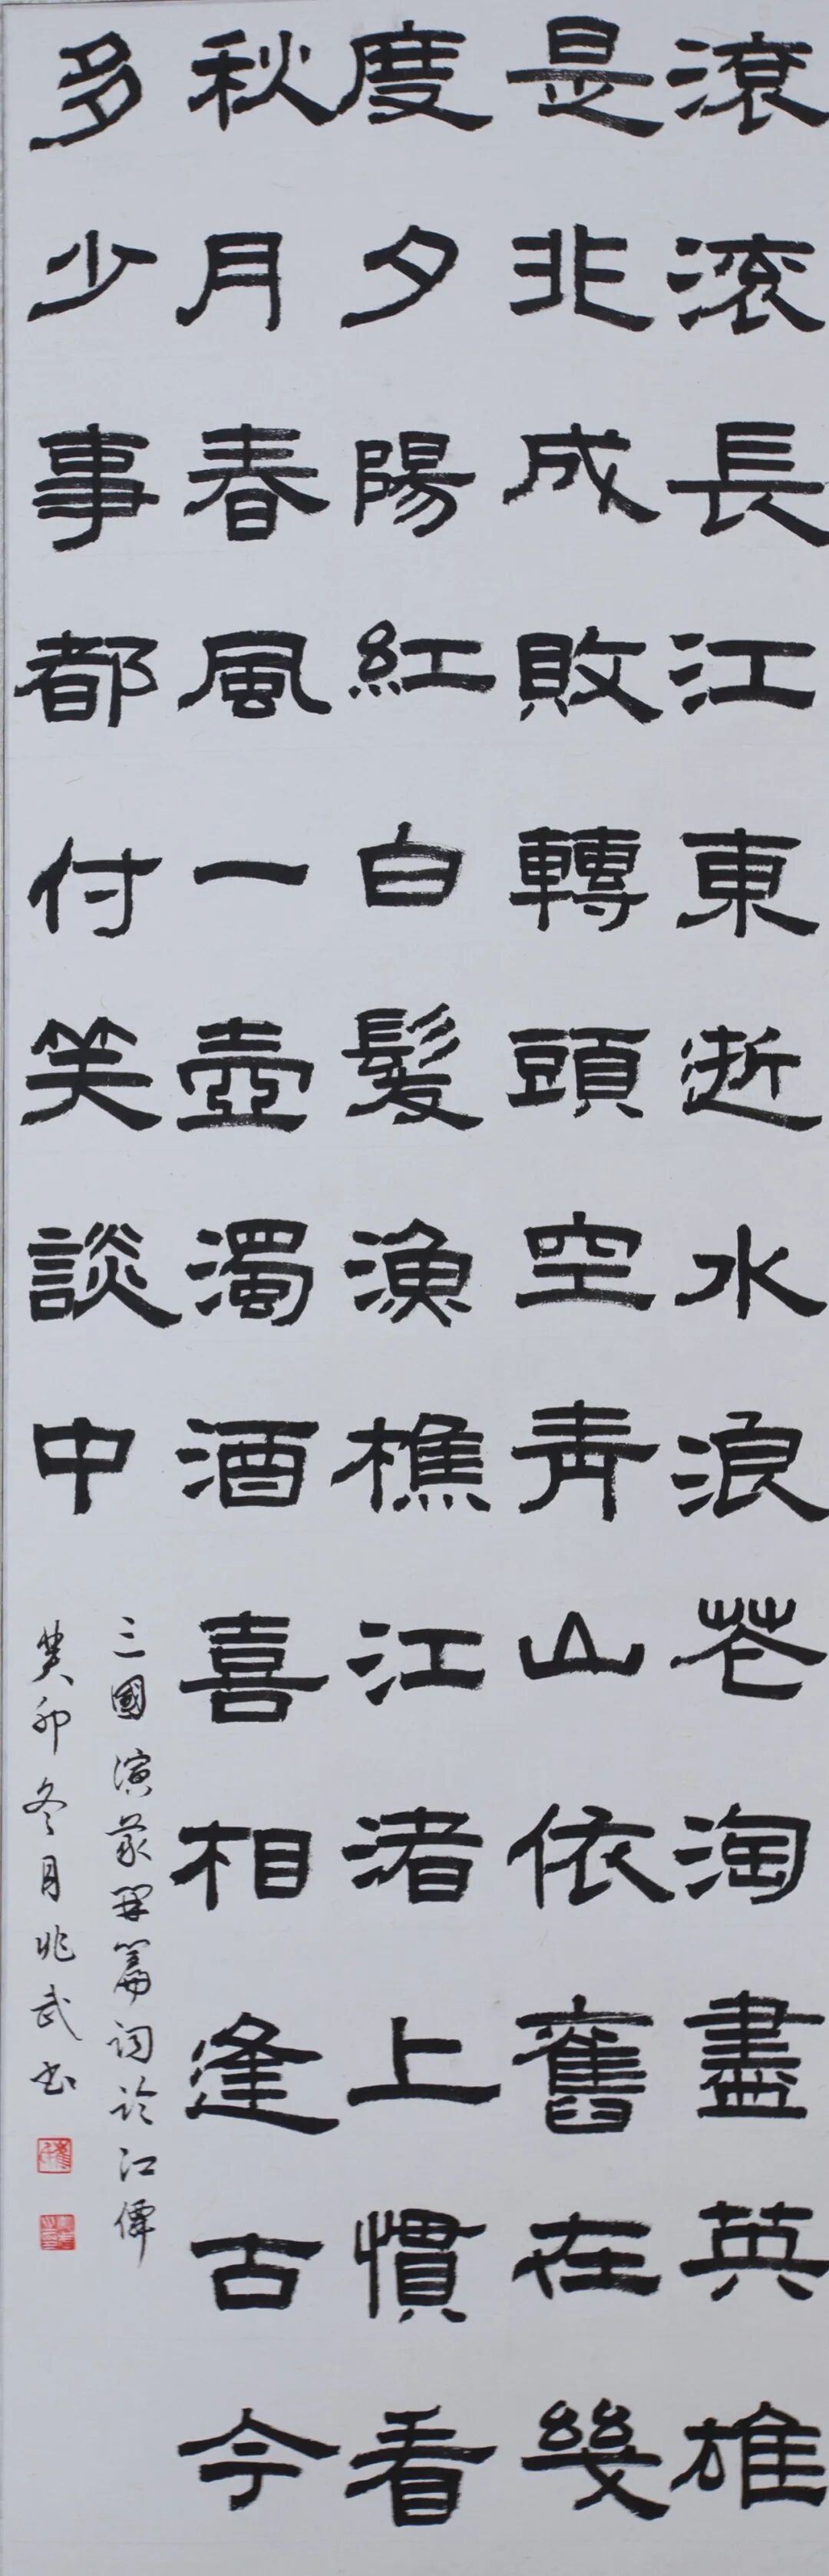 滾滚長江東逝水浪花淘盡英雄
是非成敗轉頭空青山依舊在幾
度夕陽紅白髮漁樵江渚上慣看
秋月春風一壺濁酒喜相逢古今
多少事都付笑談中
三國演義開篇詞於江
癸卯冬月兆武书